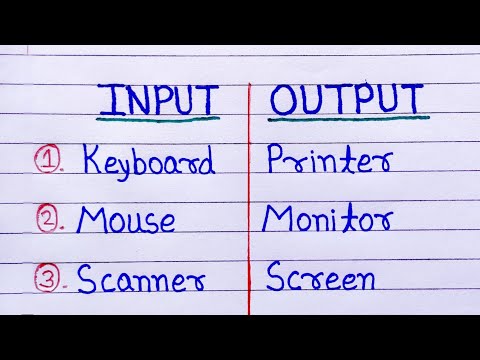 INPUT OUTPUT
1. Keyboard Printer
2. Mouse Monitor
3. Scanner Screen